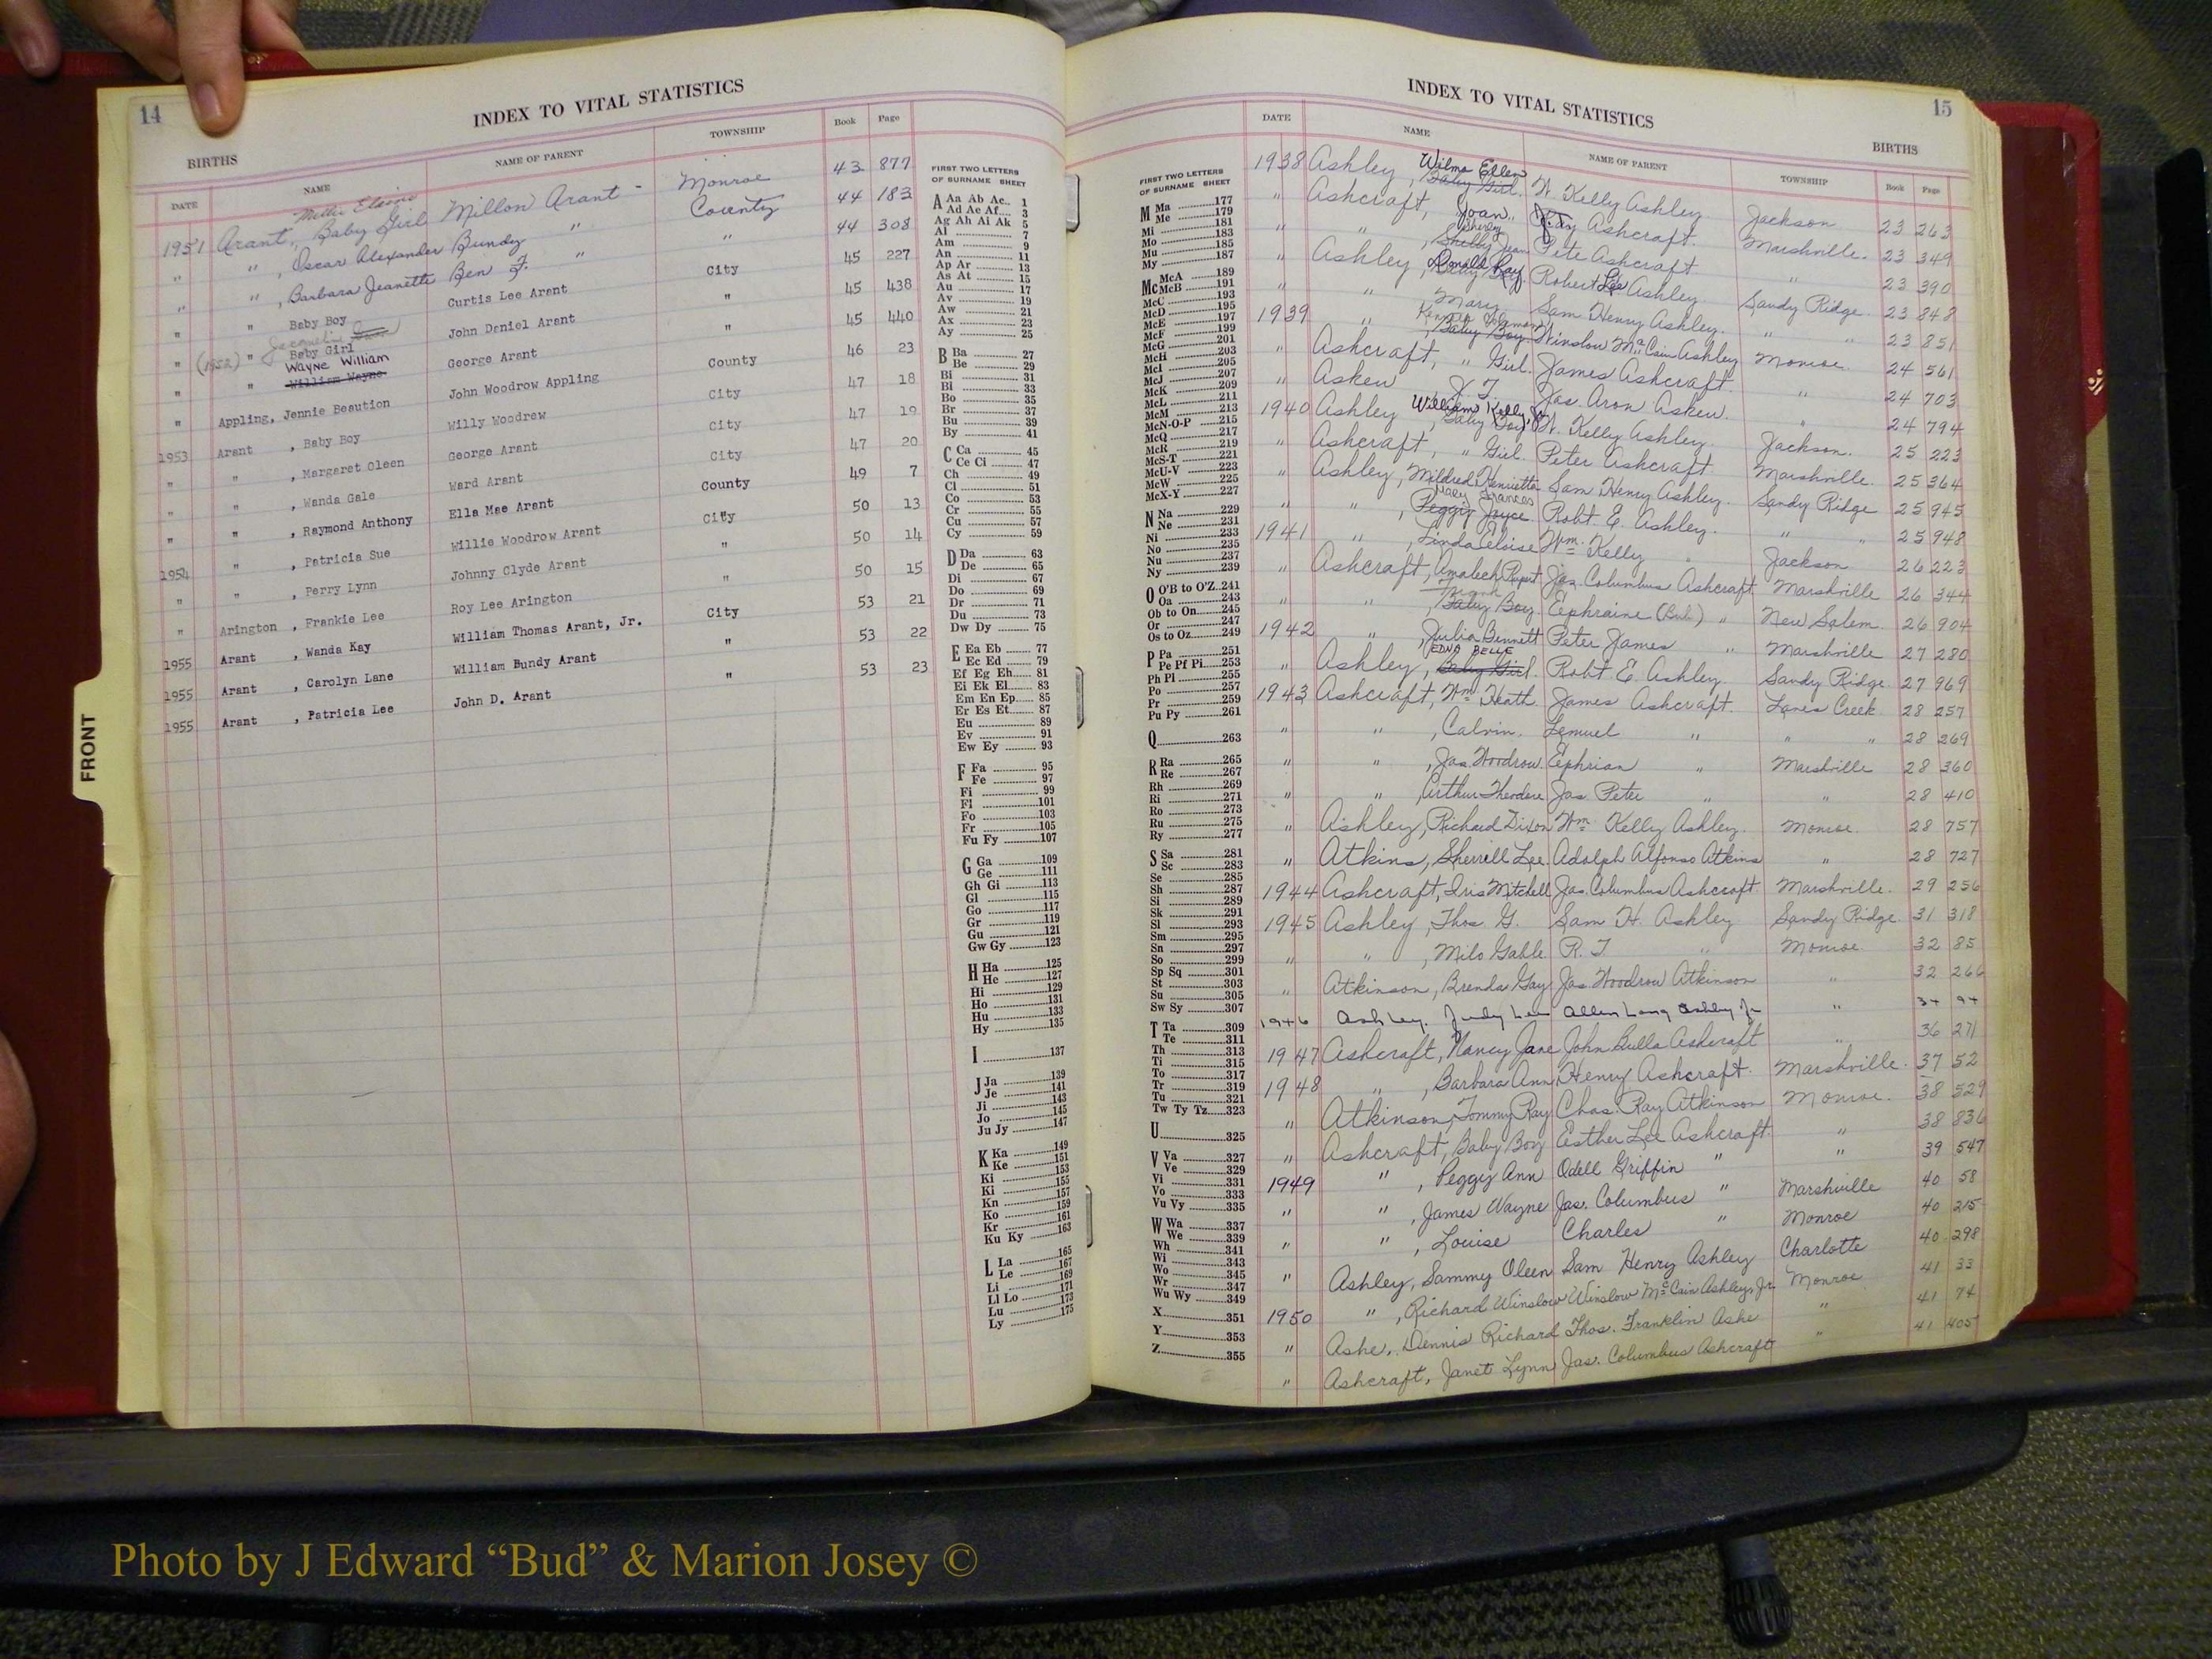 14
INDEX TO VITAL STATISTICS
BIRTHS
DATE NAME NAME OF PARENT TOWNSHIP Book Page
Millie Elaine
1951 Arant, Baby Girl Millon Arant Monroe 43 877
" " , Oscar Alexander Bundy " County 44 183
" " , Barbara Jeanette Ben F. " " 44 308
" " Baby Boy Curtis Lee Arant City 45 227
Jacqueli
" (1952) " Baby Girl John Daniel Arant " 45 438
Wayne William
" " William Wayne George Arant " 45 440
" Appling, Jennie Beaution John Woodrow Appling County 46 23
1953 Arant , Baby Boy Willy Woodrew City 47 18
" " , Margaret Oleen George Arant City 47 19
" " , Wanda Gale Ward Arant City 47 20
" " , Raymond Anthony Ella Mae Arant County 49 7
1954 " , Patricia Sue Willie Woodrow Arant City 50 13
" " , Perry Lynn Johnny Clyde Arant " 50 14
" Arington , Frankie Lee Roy Lee Arington " 50 15
1955 Arant , Wanda Kay William Thomas Arant, Jr. City 53 21
1955 Arant , Carolyn Lane William Bundy Arant " 53 22
1955 Arant , Patricia Lee John D. Arant " 53 23
FRONT
FIRST TWO LETTERS
OF SURNAME SHEET
A Aa Ab Ac.. 1
Ad Ae Af.... 3
Ag Ah Ai Ak 5
Al 7
Am 9
An 11
Ap Ar 13
As At 15
Au 17
Av 19
Aw 21
Ax 23
Ay 25
B Ba 27
Be 29
Bi 31
Bl 33
Bo 35
Br 37
Bu 39
By 41
C Ca 45
Ce Ci 47
Ch 49
Cl 51
Co 53
Cr 55
Cu 57
Cy 59
D Da 63
De 65
Di 67
Do 69
Dr 71
Du 73
Dw Dy 75
E Ea Eb 77
Ec Ed 79
Ef Eg Eh 81
Ei Ek El 83
Em En Ep 85
Er Es Et 87
Eu 89
Ev 91
Ew Ey 93
F Fa 95
Fe 97
Fi 99
Fl 101
Fo 103
Fr 105
Fu Fy 107
G Ga 109
Ge 111
Gh Gi 113
Gl 115
Go 117
Gr 119
Gu 121
Gw Gy 123
H Ha 125
He 127
Hi 129
Ho 131
Hu 133
Hy 135
I 137
J Ja 139
Je 141
Ji 143
Jo 145
Ju Jy 147
K Ka 149
Ke 151
Ki 153
Ki 155
Kn 157
Ko 159
Kr 161
Ku Ky 163
L La 165
Le 167
Li 169
Ll Lo 171
Lu 173
Ly 175
15
INDEX TO VITAL STATISTICS
BIRTHS
FIRST TWO LETTERS
OF SURNAME SHEET
M Ma 177
Me 179
Mi 181
Mo 183
Mu 185
My 187
Mc McA 189
McB 191
McC 193
McD 195
McE 197
McF 199
McG 201
McH 203
McI 205
McJ 207
McK 209
McL 211
McM 213
McN-O-P 215
McQ 217
McR 219
McS-T 221
McU-V 223
McW 225
McX-Y 227
N Na 229
Ne 231
Ni 233
No 235
Nu 237
Ny 239
O O'B to O'Z 241
Oa 243
Ob to On 245
Or 247
Os to Oz 249
P Pa 251
Pe Pf Pi 253
Ph Pl 255
Po 257
Pr 259
Pu Py 261
Q 263
R Ra 265
Re 267
Rh 269
Ri 271
Ro 273
Ru 275
Ry 277
S Sa 281
Sc 283
Se 285
Sh 287
Si 289
Sk 291
Sl 293
Sm 295
Sn 297
So 299
Sp Sq 301
St 303
Su 305
Sw Sy 307
T Ta 309
Te 311
Th 313
Ti 315
To 317
Tr 319
Tu 321
Tw Ty Tz 323
U 325
V Va 327
Ve 329
Vi 331
Vo 333
Vu Vy 335
W Wa 337
We 339
Wh 341
Wi 343
Wo 345
Wr 347
Wu Wy 349
X 351
Y 353
Z 355
DATE NAME NAME OF PARENT TOWNSHIP Book Page
Wilma Ellen
1938 Ashley, Baby Girl. W. Kelly Ashley Jackson 23 263
" Ashcraft, Joan Ashcraft. Marshville. 23 349
" " , Shelby Jean Pete Ashcraft " 23 390
" Ashley, Donald Ray Robert Lee Ashley Sandy Ridge 23 848
" " Mary Sam Henry Ashley. " " 23 851
1939 " , Baby Boy. Winslow McCain Ashley Monroe 24 561
" Ashcraft, " Girl. James Ashcraft. " 24 703
" Askew J. T. Jas. Aron Askew " 24 794
William Kelly Jr
1940 Ashley Baby Boy W. Kelly Ashley Jackson. 25 223
" Ashcraft, " Girl. Peter Ashcraft Marshville. 25 364
" Ashley, Mildred Henrietta Sam Henry Ashley. Sandy Ridge 25 945
Mary Frances
" " , Peggy Joyce Robt E. Ashley. " " 25 948
1941 " , Linda Eloise Wm. Kelly " Jackson 26 223
" Ashcraft, Amalech Rupert Jas. Columbus Ashcraft Marshville 26 344
Frank
" " , Baby Boy Ephraine (Bud.) " New Salem. 26 904
1942 " , Julia Bennett Peter James " Marshville 27 280
EDNA BELLE
" Ashley, Baby Girl. Robt E. Ashley Sandy Ridge. 27 969
1943 Ashcraft, Wm. Heath. James Ashcraft. Lanes Creek 28 257
" " , Calvin. Lemuel " " " 28 269
" " , Jas. Woodrow. Ephrian " Marshville 28 360
" " , Arthur Theodore Jas. Peter " " 28 410
" Ashley, Richard Dixon Wm. Kelly Ashley. Monroe. 28 757
" Atkins, Sherrill Lee. Adolph Alfonso Atkins " 28 727
1944 Ashcraft, Iris Mitchell Jas. Columbus Ashcraft Marshville. 29 256
1945 Ashley, Thos. G. Sam H. Ashley Sandy Ridge. 31 318
" " , Milo Gable R. T " Monroe 32 85
" Atkinson, Brenda Gay Jas. Woodrow Atkinson " 32 266
1946 Ashley, Judy Lee Allen Long Ashley Jr " 34 94
1947 Ashcraft, Nancy Jane John Bulla Ashcraft " 36 271
1948 " , Barbara Ann Henry Ashcraft. Marshville. 37 52
" Atkinson, Tommy Ray Chas. Ray Atkinson Monroe. 38 529
" Ashcraft, Baby Boy Esther Lee Ashcraft. " 38 836
1949 " , Peggy Ann Odell Griffin " " 39 547
" " , James Wayne Jas. Columbus " Marshville 40 58
" " , Louise Charles " Monroe 40 215
" Ashley, Sammy Oleen Sam Henry Ashley Charlotte 40 298
1950 " , Richard Winslow Winslow McCain Ashley, Jr. Monroe 41 33
" Ashe, Dennis Richard Thos. Franklin Ashe " 41 74
" Ashcraft, Janet Lynn Jas. Columbus Ashcraft " 41 405
Photo by J Edward “Bud” & Marion Josey ©